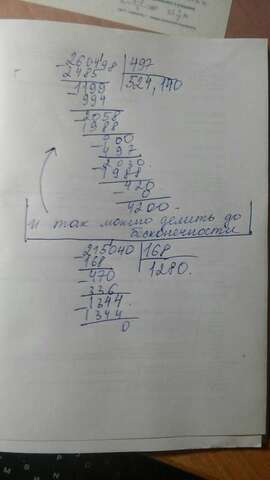 -260498 | 497
2485 | 524,140
-1199
994
-2058
1988
-700
497
-2030.
1988
-420
0
4200.
И так можно делить до
бесконечности
-215040 | 168
168 | 1280.
-470
336
-1344.
1344
0